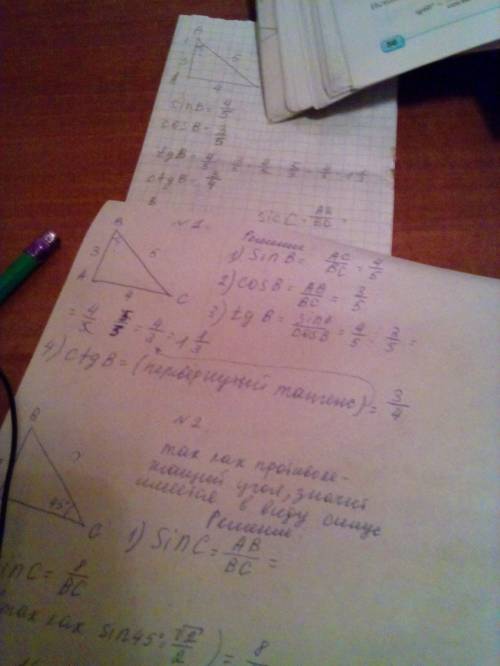 56
B
5
4
sin B = 4/5
cos B = 3/5
tg B =
ctg B = 3/4
B
sin C = AB/BC =
B
3
5
A
4
C
Решение
1) Sin B = AC/BC = 4/5
2) cos B = AB/BC = 3/5
3) tg B = Sin B/Cos B = 4/5 : 3/5 =
= 4/3 = 1 1/3
4) Ctg B = (перевёрнутый тангенс) = 3/4
N2
B
?
45°
C
так как противоле-
жащий угол, значит
имеется в виду синус
Решение:
1) Sin C = AB/BC =
in C = 8/BC
так как sin 45° = √2/2) = 8